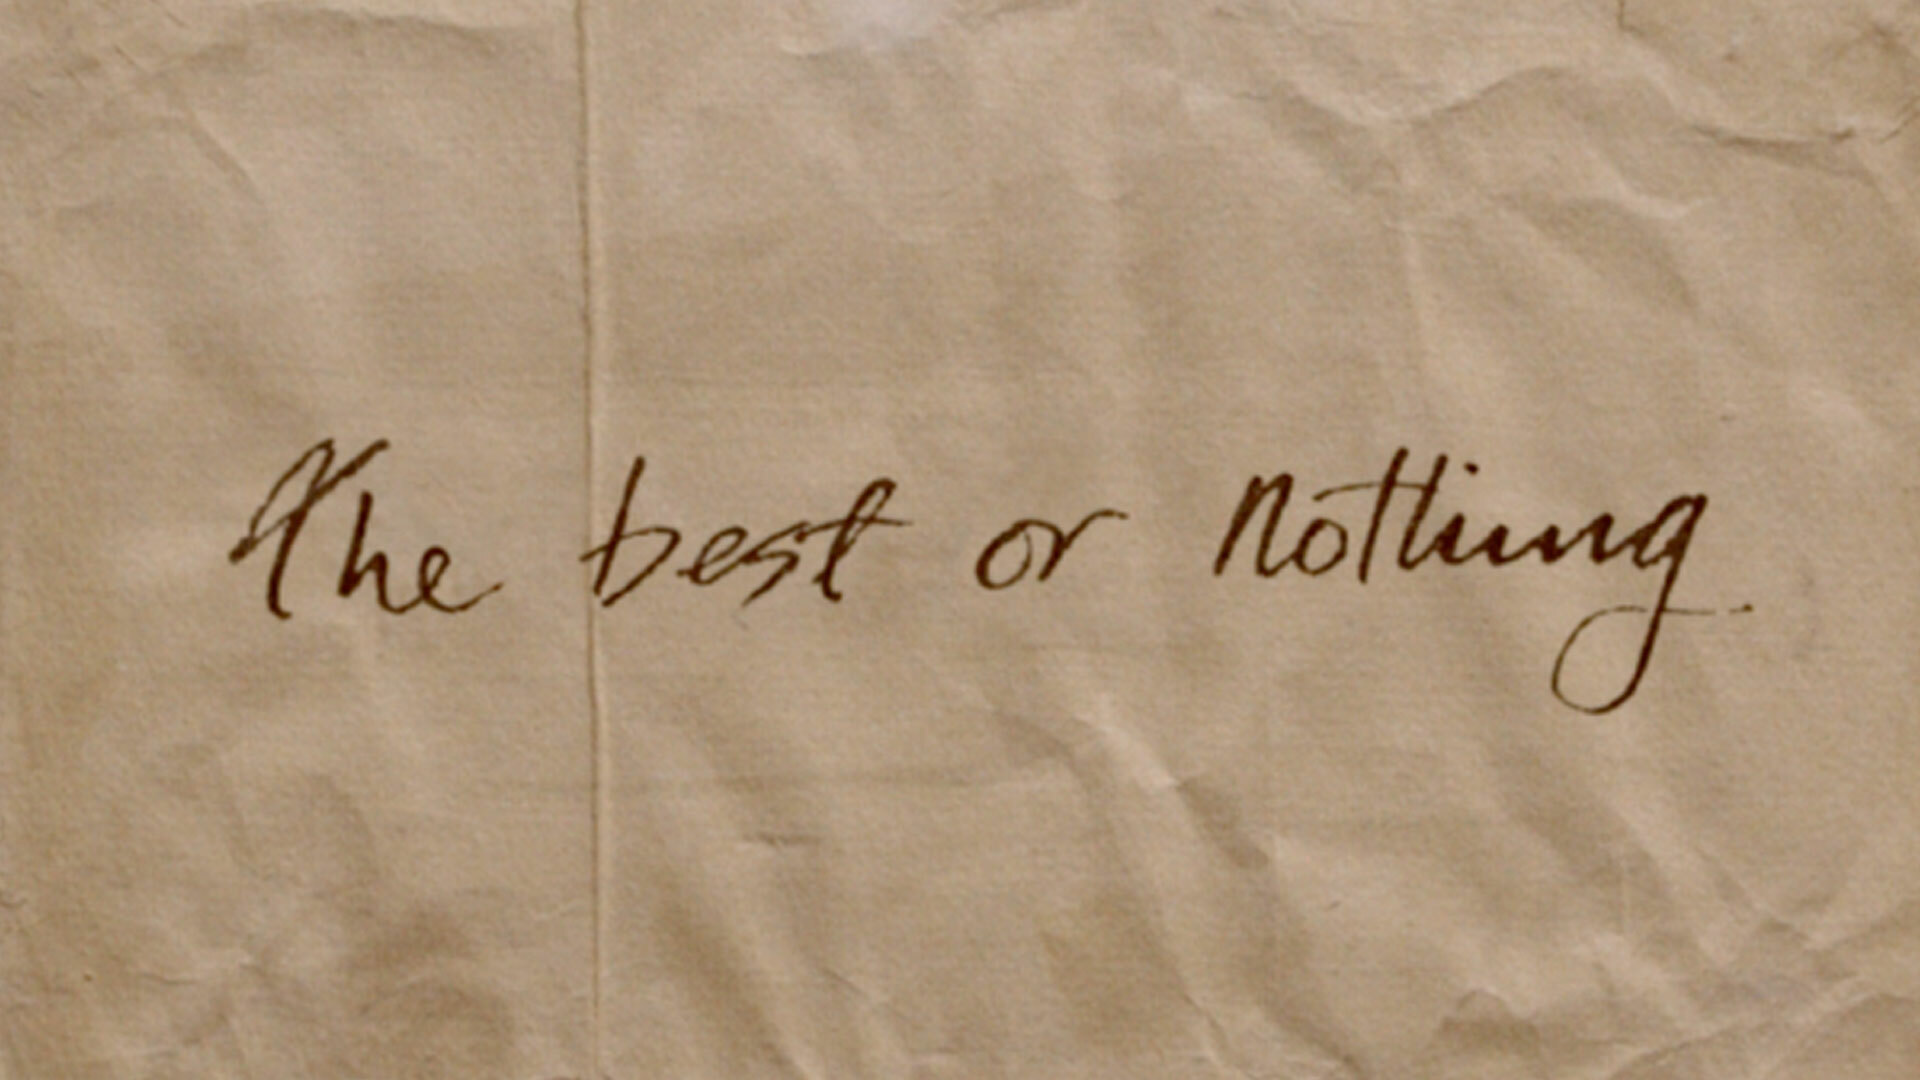 The best or nothing.